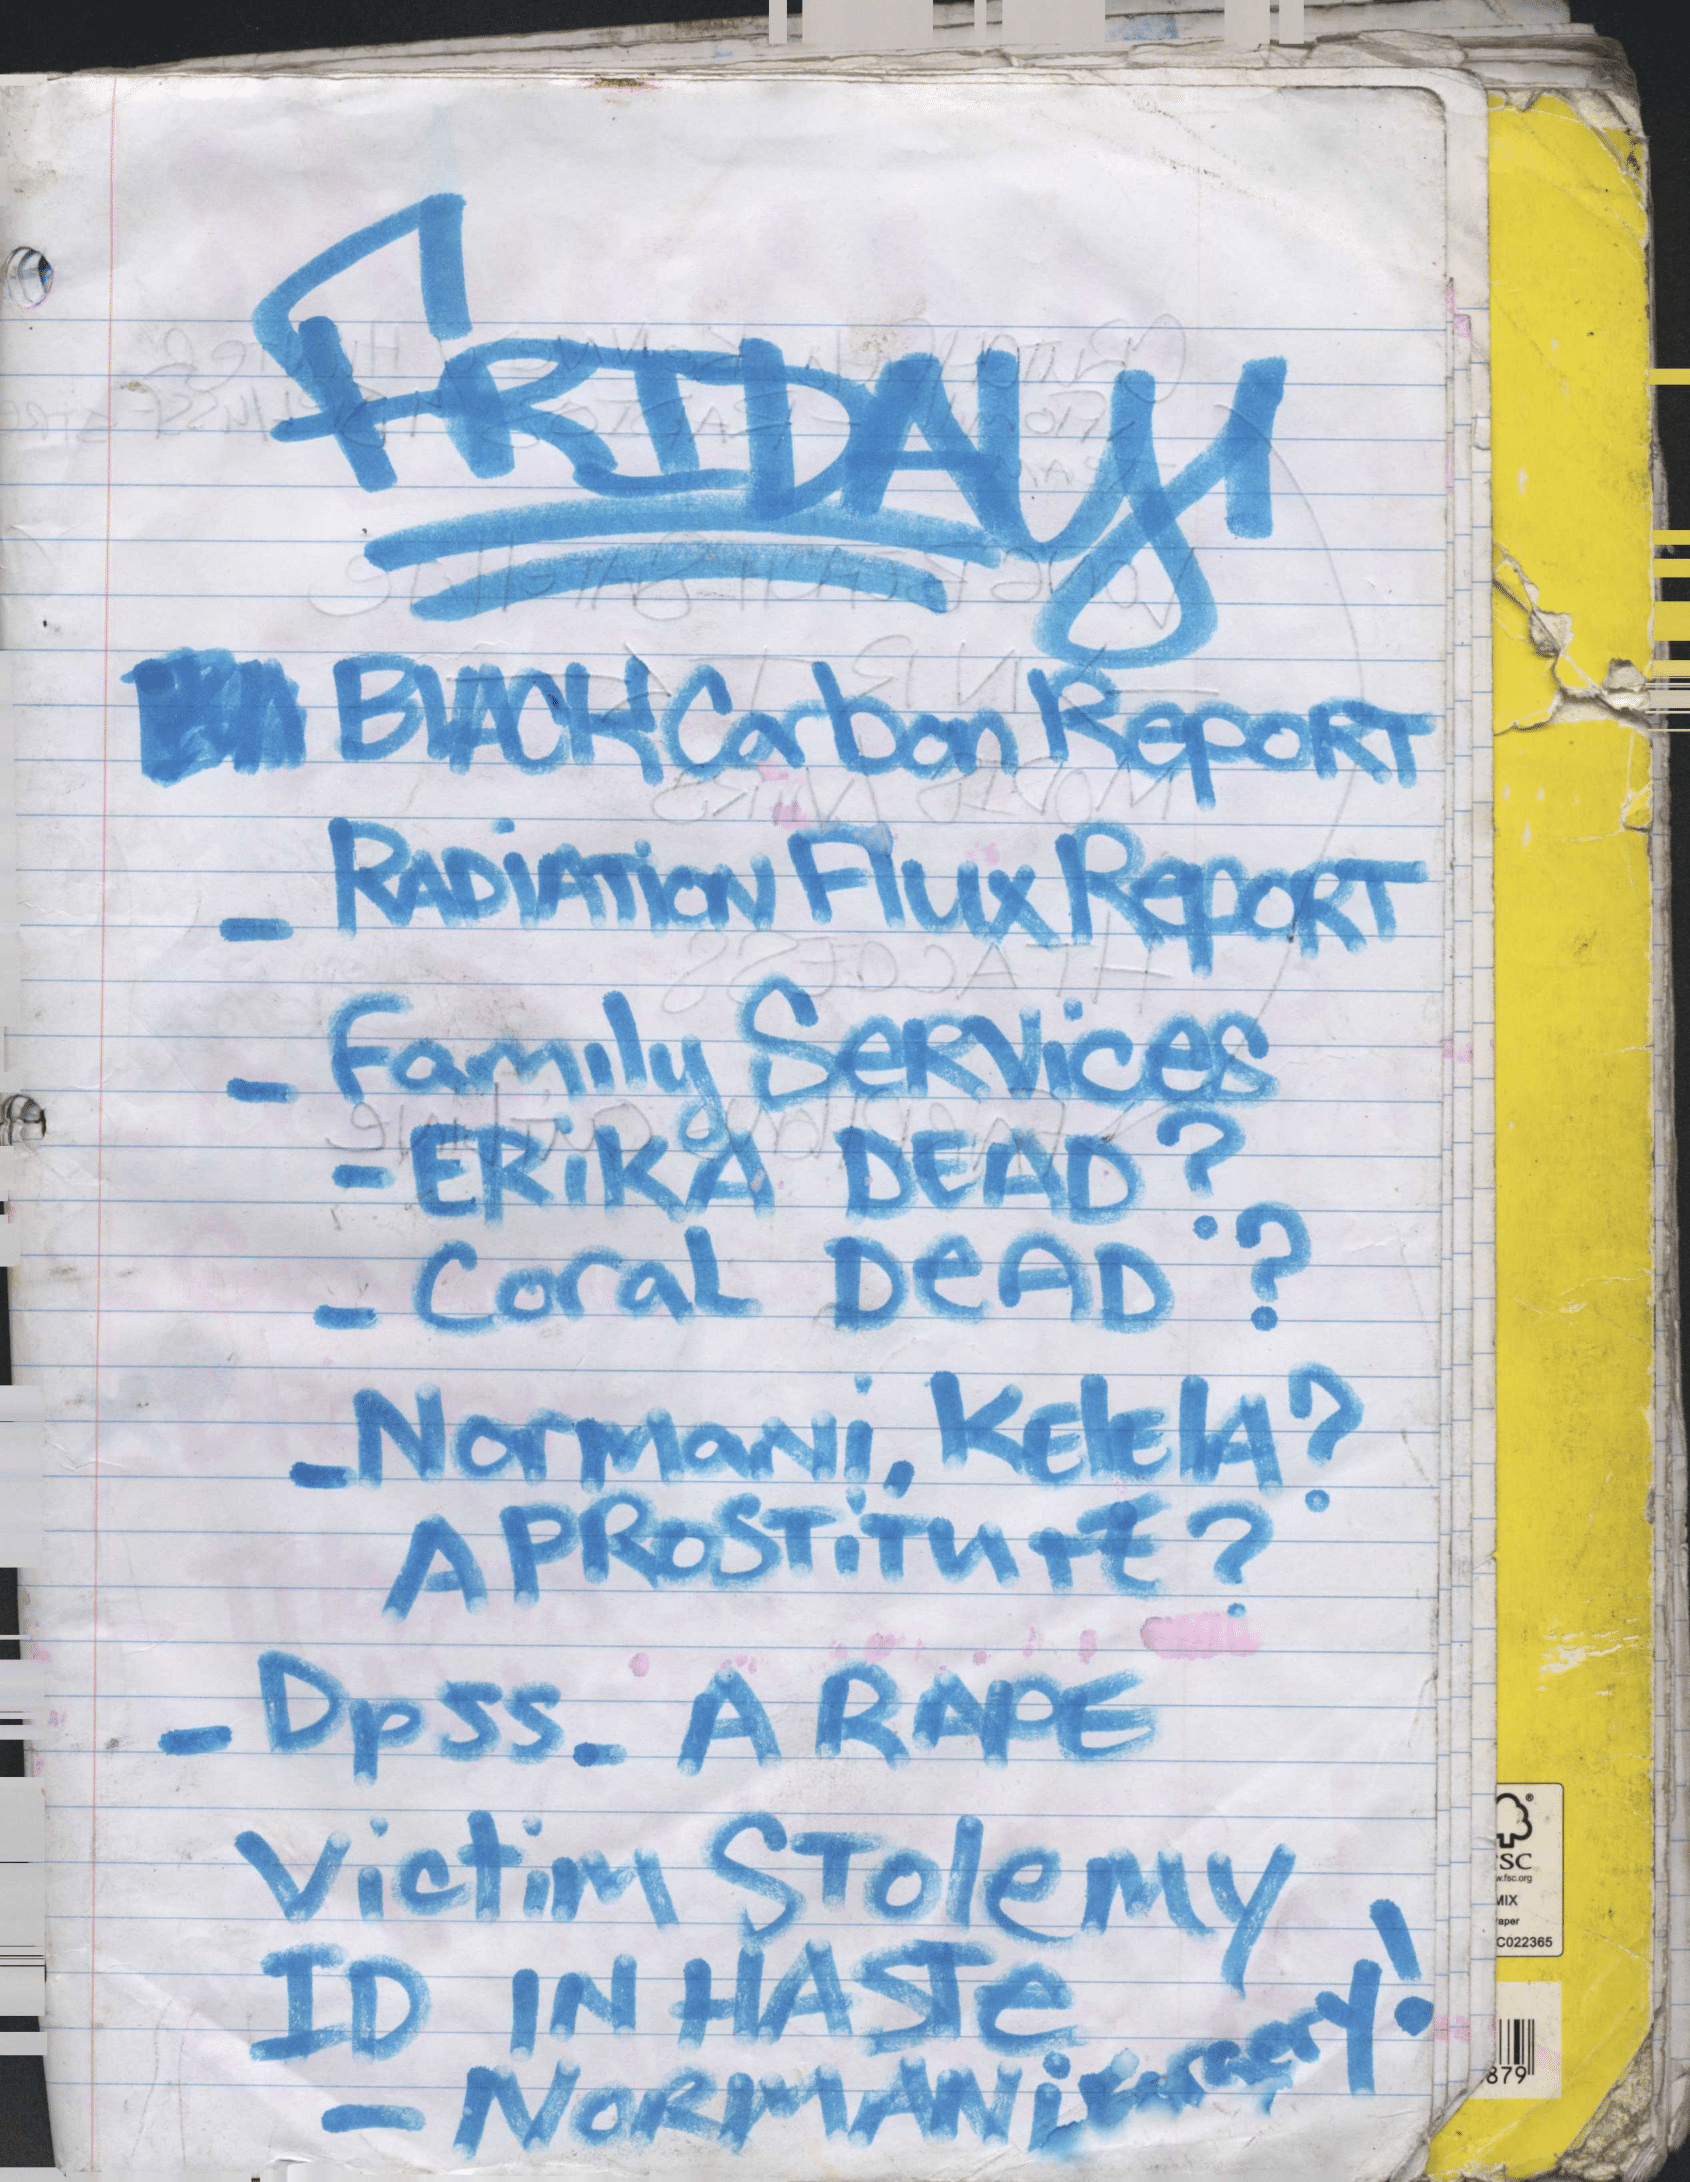 FRIDAY
BLACK Carbon Report
- RADIATION Flux Report
- Family Services
- ERIKA DEAD?
- Coral DEAD?
- Normani, Kelela?
A PROSTITUTE?
- Dpss - A RAPE
Victim Stole my
ID IN HASTE
- NORMANI
FSC
www.fsc.org
MIX
Paper
C022365
879